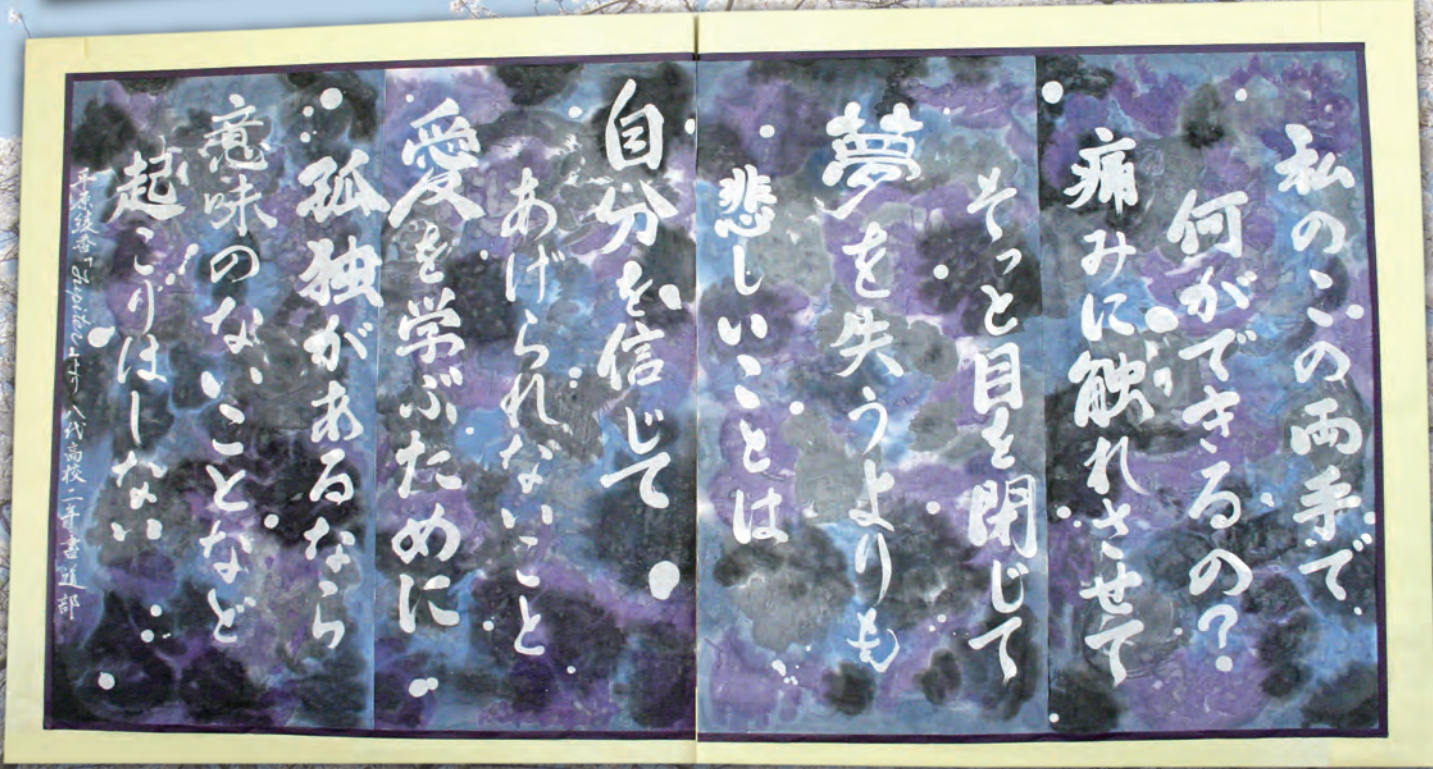 私のこの両手で
何ができるの?
痛みに触れさせて
そっと目を閉じて
夢を失うよりも
悲しいことは
自分を信じて
あげられないこと
愛を学ぶために
孤独があるなら
意味のないことなど
起こりはしない
平原綾香「Jupiter」より 八代高校二年書道部